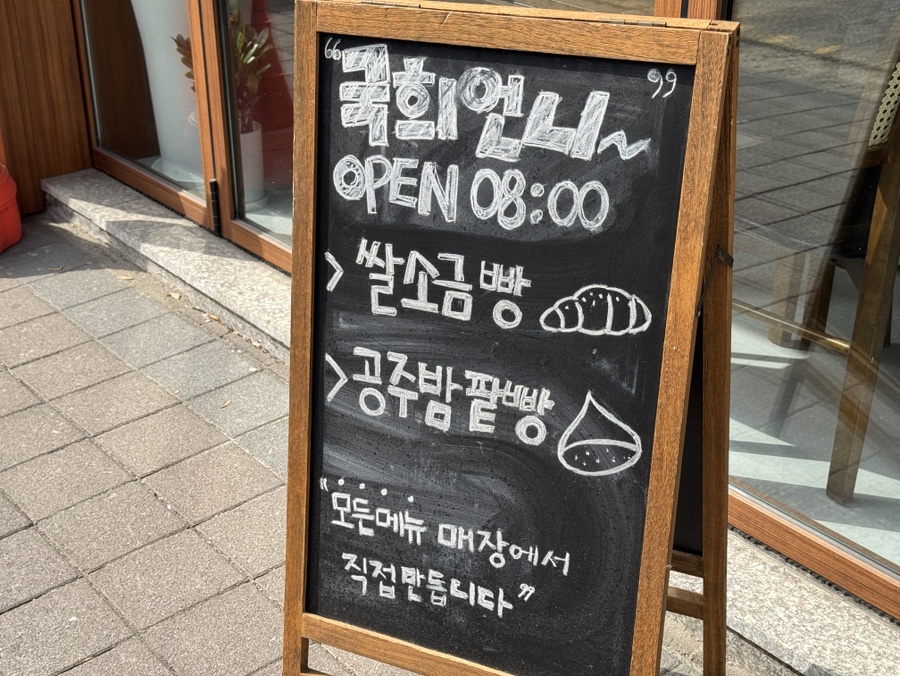 “국희언니~”
OPEN 08:00
> 쌀소금빵
> 공주밤팥빵
"모든메뉴 매장에서
직접만듭니다"